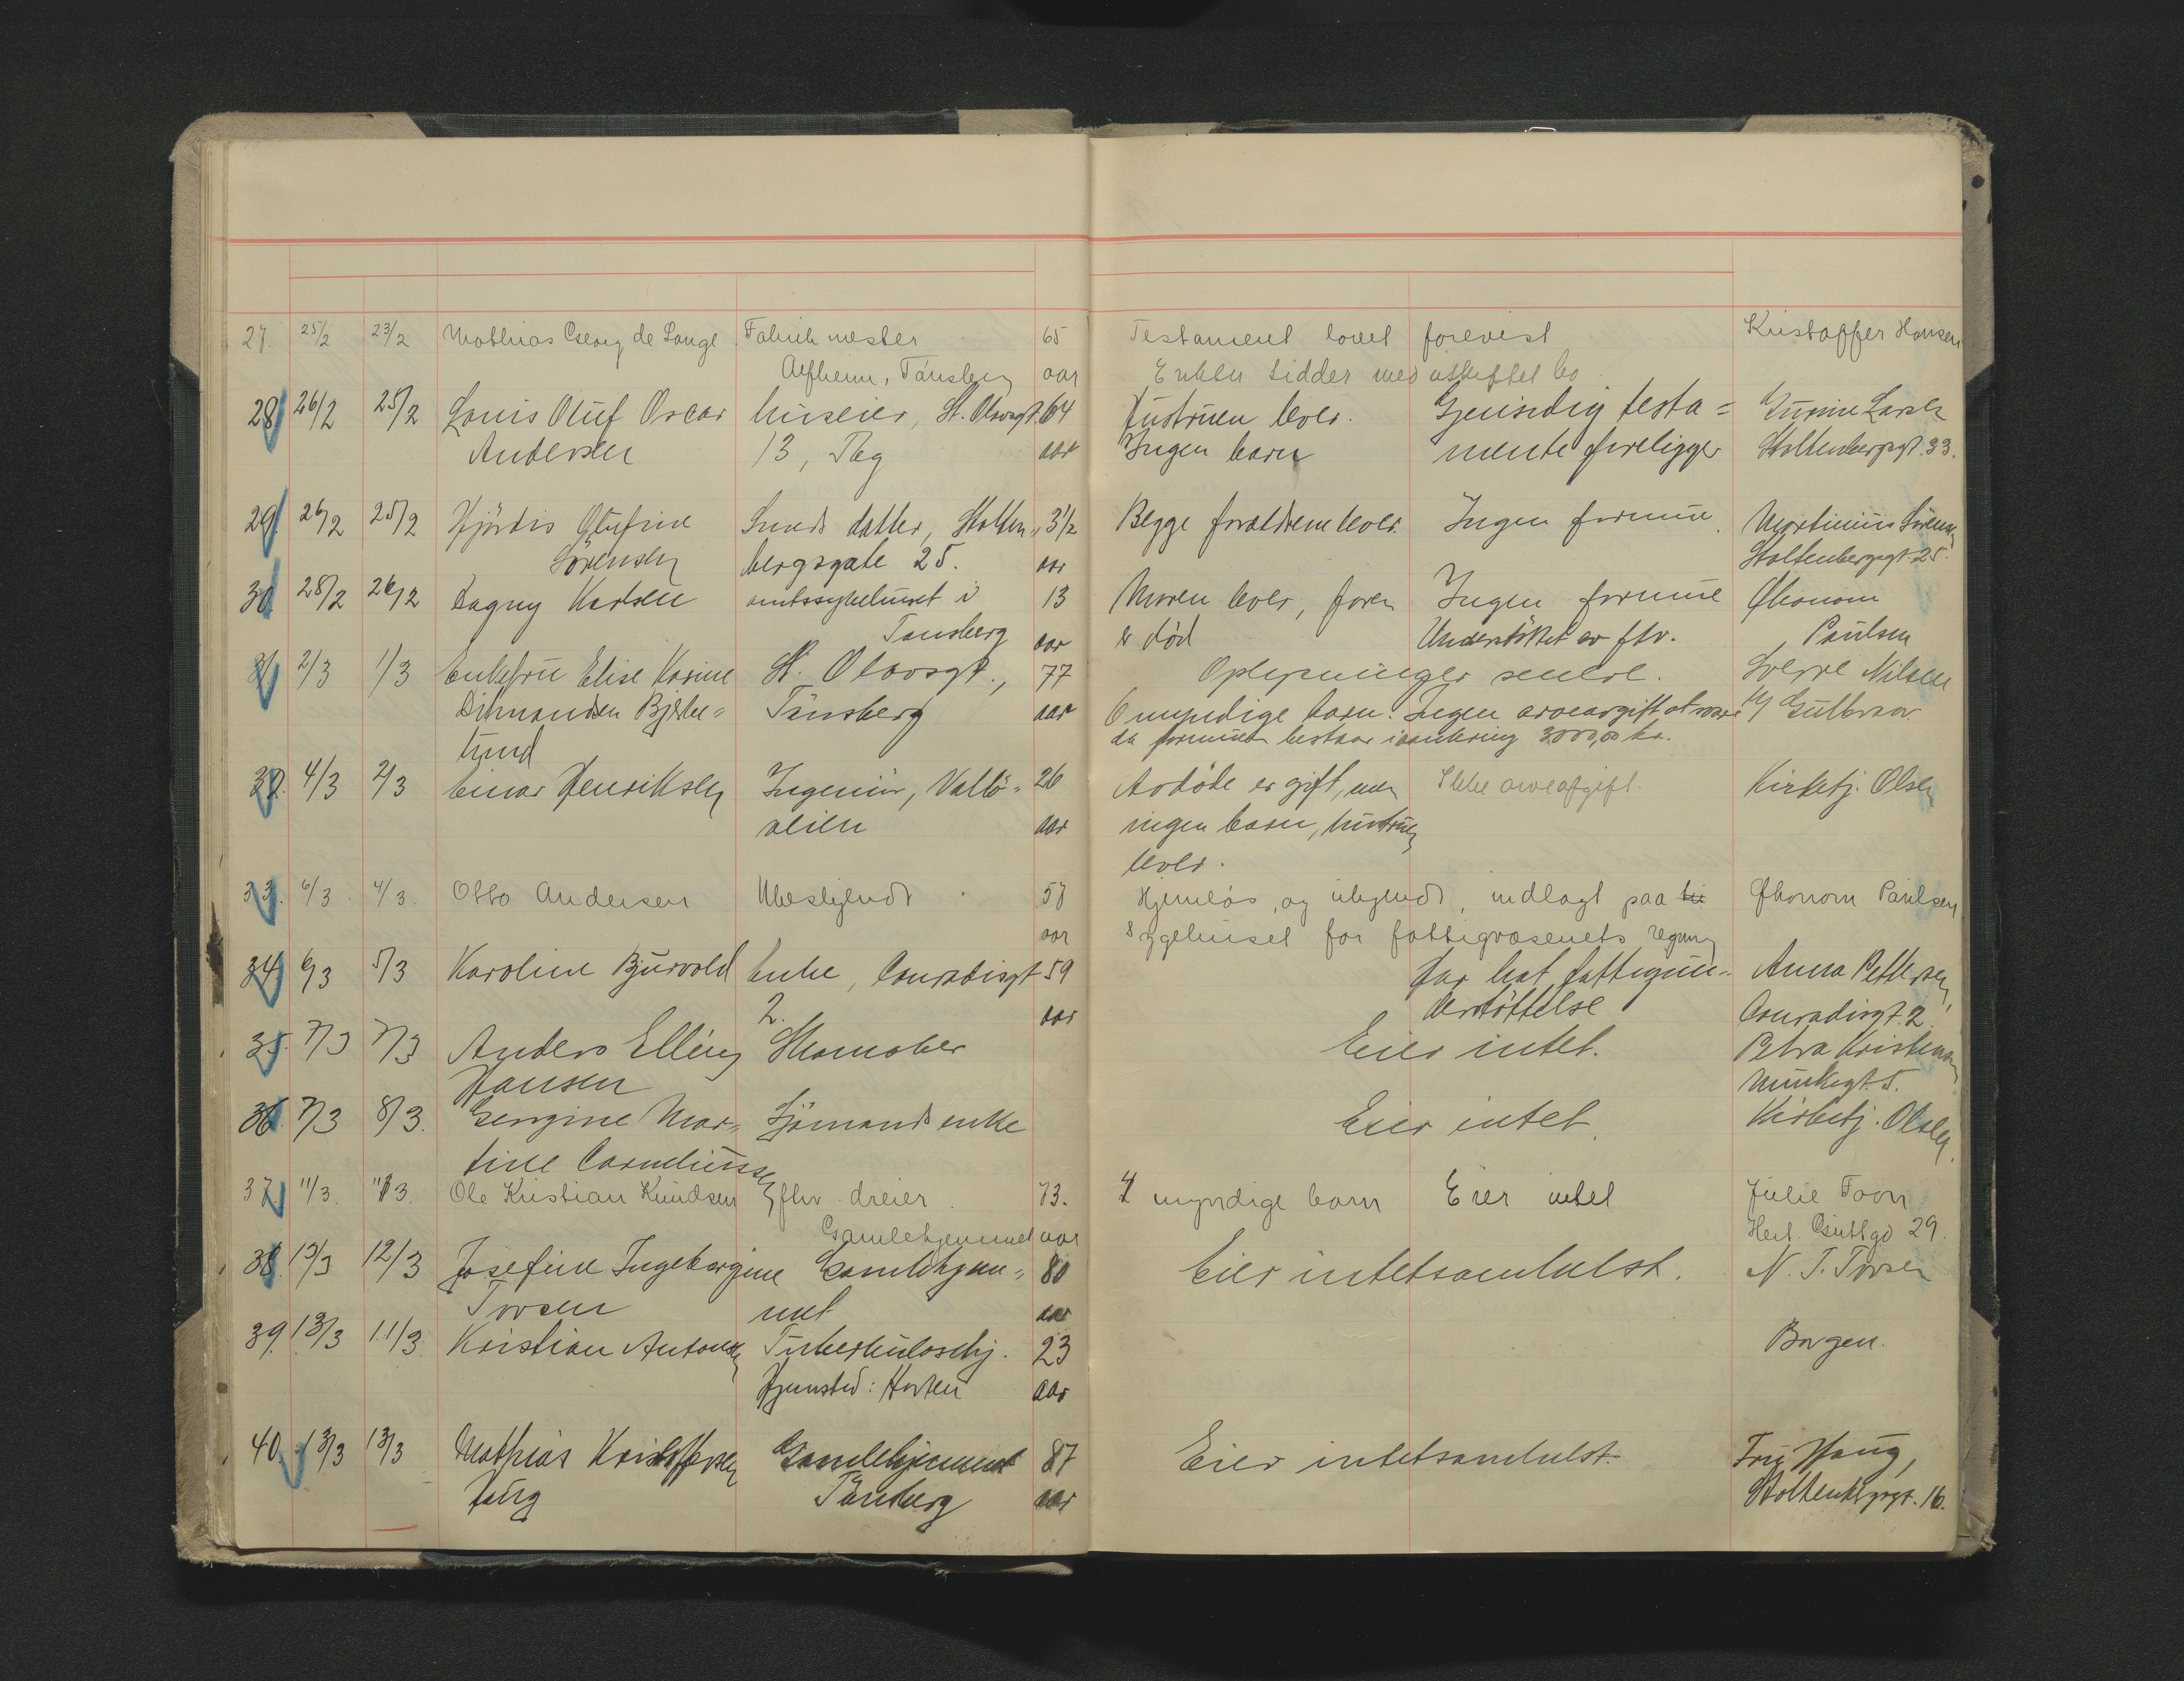 27. 25/2 23/2 Mathias Georg de Lange Fabrikmester 65 Testament lovet forevist Kristoffer Hansen
Alfheim, Tønsberg aar Enken sidder med uskiftet bo
28 26/2 25/2 Louis Oluf Oscar huseier, St. Olavsgt. 64 Hustruen lever. Gjensidig testa= Larsen
Andersen 13, Tbg aar Ingen barn mente foreligger Stoltenbergsgt. 33.
29. 26/2 25/2 Hjördis Olufine Smeds datter, Stolten- 3 1/2 Begge forældrene lever. Ingen formue. Martinius Sörensen
Sörensen bergsgate 25. aar Stoltenbergsgt. 25.
30 28/2 26/2 Dagny Karlsen amtssykehuset i 13 Moren lever, faren Ingen formue Økonom
Tønsberg aar er död Understöttet av ftv. Paulsen
31 2/3 1/3 Enkefru Elise Karine St. Olavsgt., 77 Oplysninger senere. Sverre Nilsen
Bjerke= Tønsberg aar 6 myndige barn. Ingen arveavgift at svare
lund da formuen bestaar i omkring 3000,00 kr.
32. 4/3 2/3 Einar Henriksen Ingeniör, Vallö= 26 Avdöde er gift, men Ikke arveafgift. Kirketj. Olsen
veien aar ingen barn, hustruen
lever.
33. 6/3 4/3. Otto Andersen Ubeskjendt 57 Hjemlös, og ukjendt, indlagt paa Økonom Paulsen
aar sygehuset for fattigvæsenets regning
34 6/3 5/3 Karoline Bjurvold Enke, Conradisgt 59 har hat fattigun= Anna Pettersen,
2. aar derstöttelse Conradisgt. 2.
35. 7/3 7/3 Anders Elling Skomaker Eier intet. Petra Kristensen
Hansen Munkegt. 5.
36. 7/3 8/3. Georgine Mar= Sjömands enke Eier intet. Kirketj. Olsen.
tine Corneliussen
37 11/3. 11/3. Ole Kristian Knudsen fhv. dreier. 73. 4 myndige barn Eier intet Julie Foon
Gamlehjemmet aar 29.
38. 13/3 12/3 Josefine Ingeborgine Gamlehjem= 80 Eier intetsomhelst. N. T. Torsen
Torsen met aar
39. 13/3 11/3. Kristian Antonsen Tuberkuloschj. 23 Borgen.
Hjemsted: Horten aar
40. 13/3 13/3 Mathias Kristoffersen Gamlehjemmet 87 Eier intetsomhelst. Haug,
Haug Tønsberg aar Stoltenbergsgt. 16.